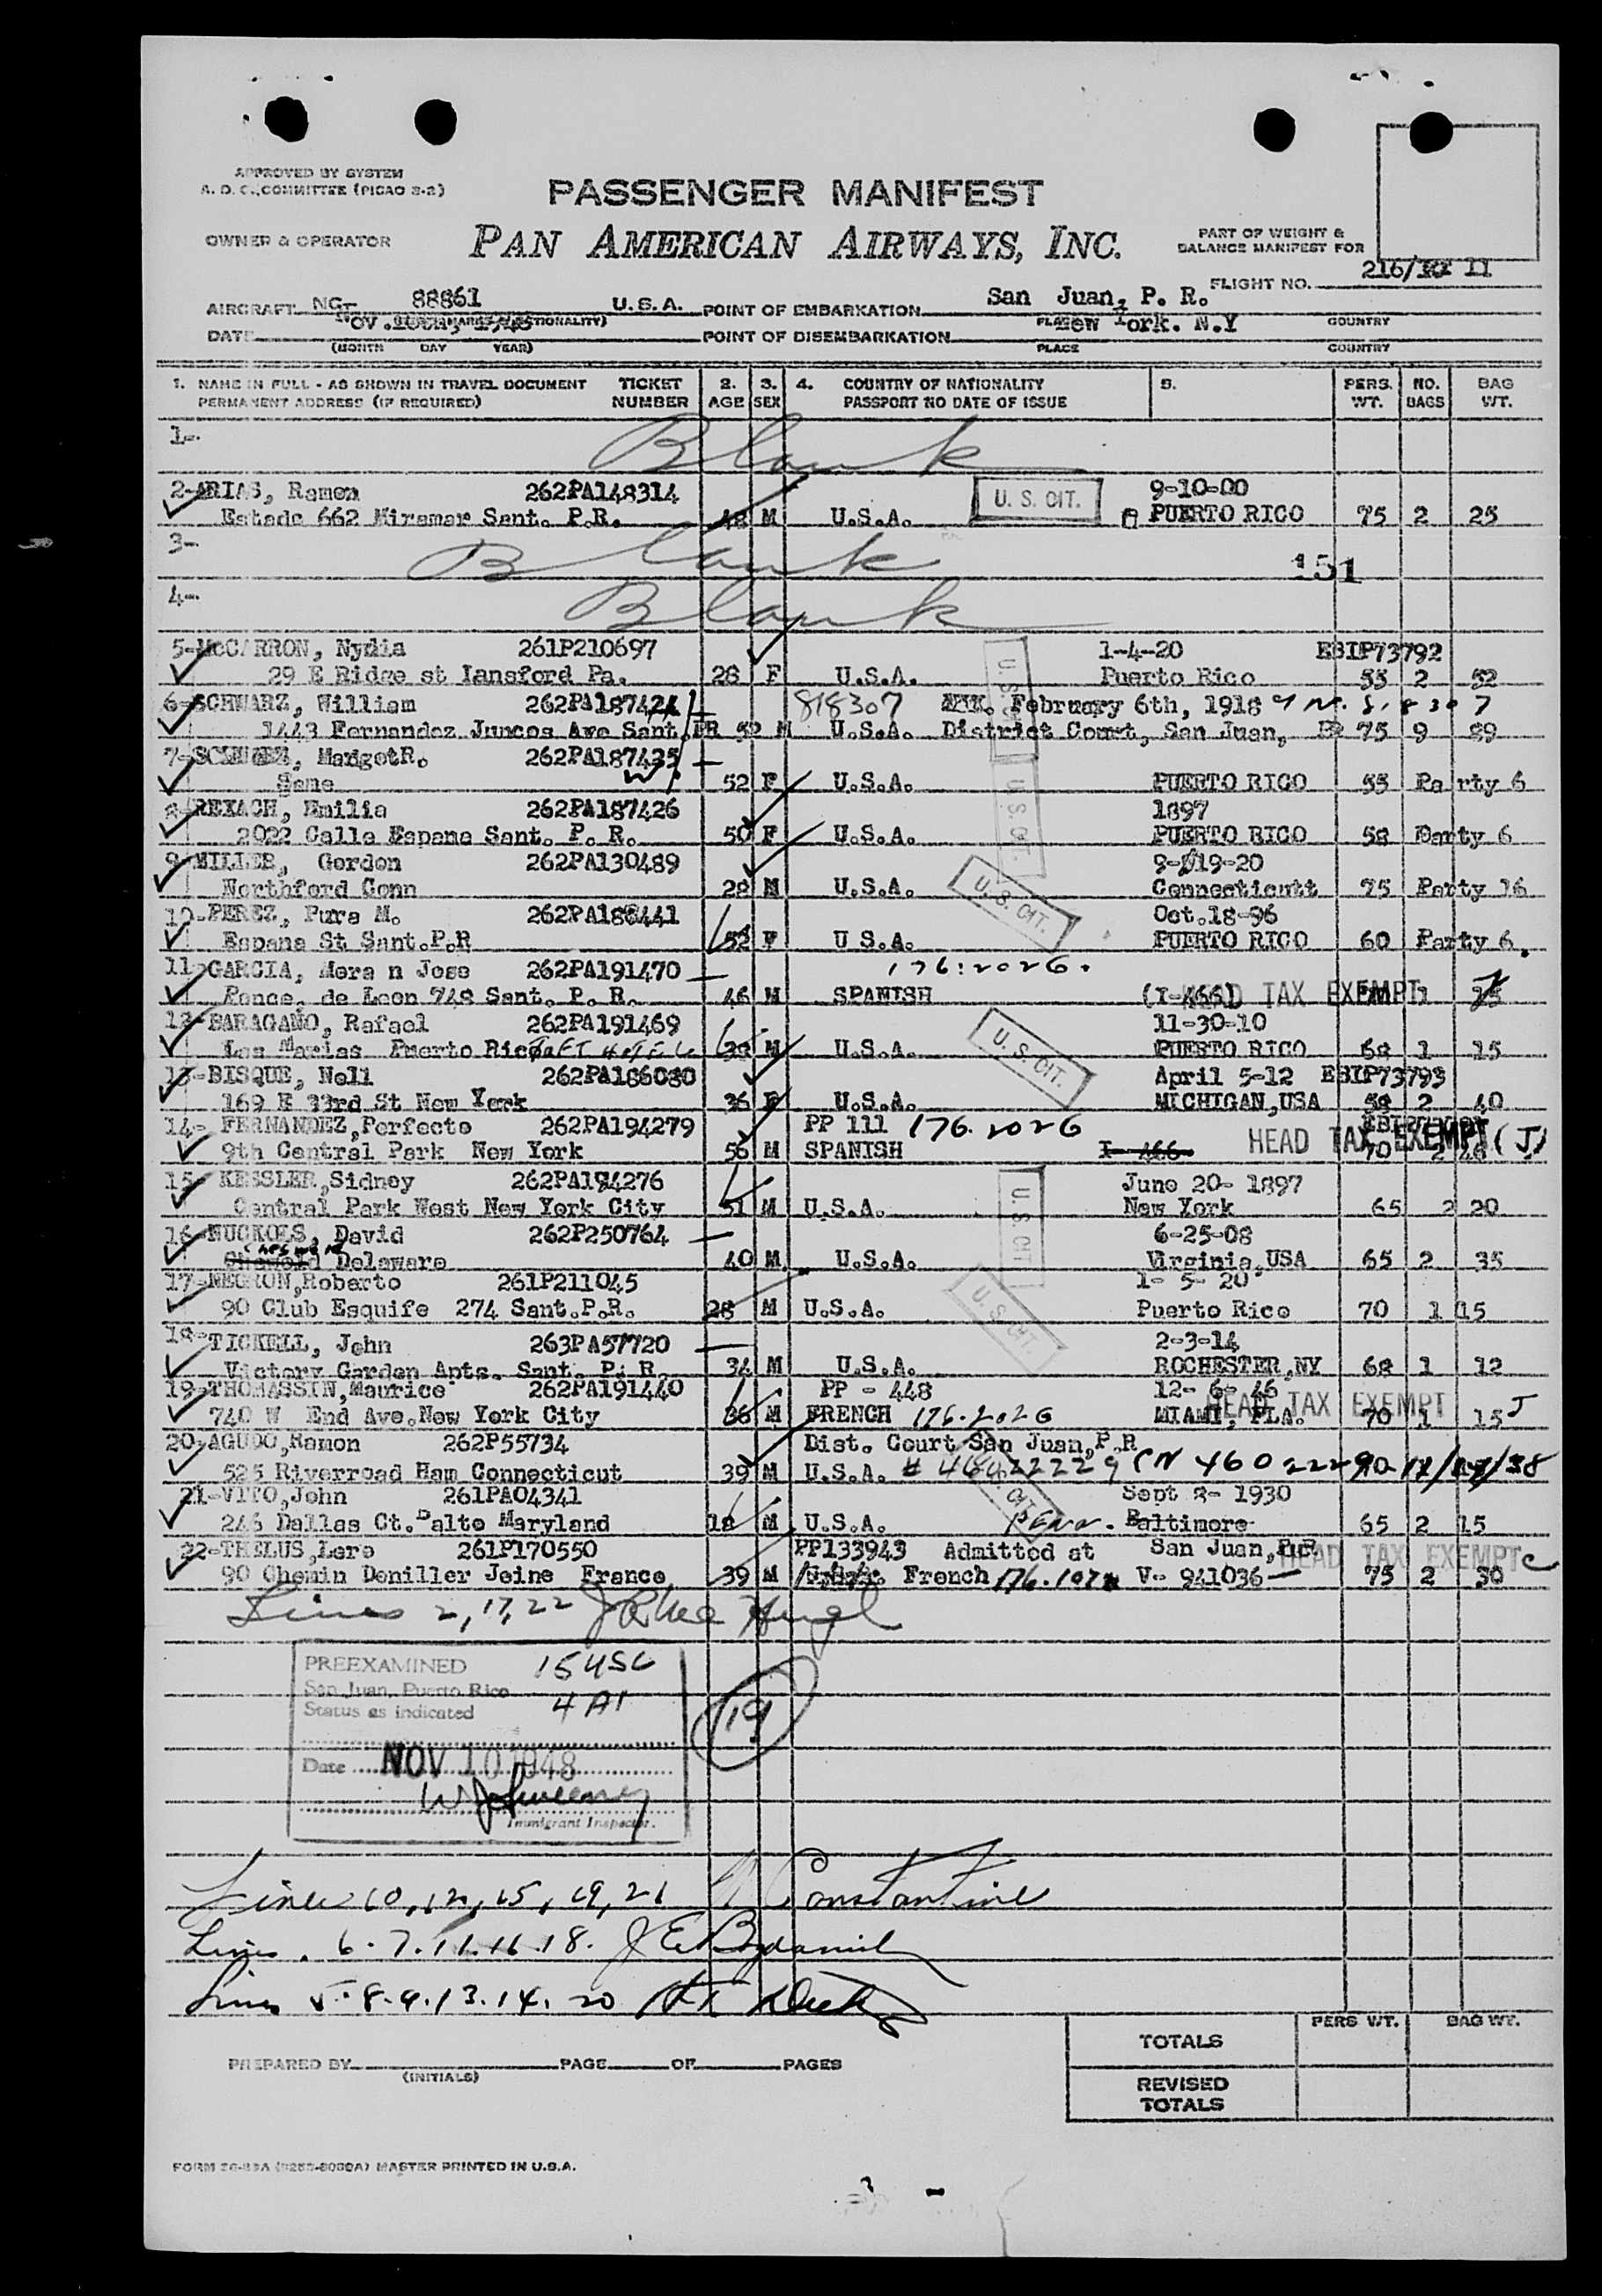 APPROVED BY SYSTEM
A. D. C. COMMITTEE (PICAO 2-2)
PASSENGER MANIFEST
OWNER & OPERATOR
PAN AMERICAN AIRWAYS, INC.
PART OF WEIGHT &
BALANCE MANIFEST FOR
FLIGHT NO. 216/ 11
AIRCRAFT NC- 88861 U. S. A. POINT OF EMBARKATION San Juan, P. R.
DATE POINT OF DISEMBARKATION New York. N.Y
(MONTH DAY YEAR) PLACE COUNTRY
1. NAME IN FULL - AS SHOWN IN TRAVEL DOCUMENT TICKET 2. 3. 4. COUNTRY OF NATIONALITY 5. PERS. NO. BAG
PERMANENT ADDRESS (IF REQUIRED) NUMBER AGE SEX PASSPORT NO DATE OF ISSUE WT. BAGS WT.
1- Blank
2-ARIAS, Ramon 262PA148314 U. S. CIT. 9-10-00
Estado 662 Miramar Sant. P.R. 48 M U.S.A. PUERTO RICO 75 2 25
3- Blank 151
4- Blank
5-McCARRON, Nydia 261P210697 1-4-20 EBIP73792
29 E Ridge st Lansford Pa. 28 F U.S.A. Puerto Rico 55 2 52
6-SCHWARZ, William 262PA187424 818307 February 6th, 1918
1443 Fernandez Juncos Ave Sant.PR 52 M U.S.A. District Court, San Juan, PR 75 9 89
7-SCHWARZ, MargotR. 262PA187425
Same 52 F U.S.A. PUERTO RICO 55 Party 6
8-REXACH, Emilia 262PA187426 1897
2022 Calle Espana Sant. P. R. 50 F U.S.A. PUERTO RICO 58 Party 6
9-MILLER, Gordon 262PA130489 9-19-20
Northford Conn 28 M U.S.A. Connecticutt 75 Party 16
10-PEREZ, Pura M. 262PA188441 U. S. CIT. Oct.18-96
Espana St Sant.P.R 52 F U S.A. PUERTO RICO 60 Party 6
11-GARCIA, Mora n Jose 262PA191470 176.2026.
Ponce de Leon 748 Sant. P. R. 46 M SPANISH (I-466) HEAD TAX EXEMPT 1
12-BARAGAÑO, Rafael 262PA191469 11-30-10
Las Marias Puerto Rico TAFT HOTEL M U.S.A. U. S. CIT. PUERTO RICO 68 1 15
13-BISQUE, Noll 262PA186080 April 5-12 EBIP73793
169 E 33rd St New York 36 F U.S.A. MICHIGAN,USA 2 40
14- FERNANDEZ,Perfecto 262PA194279 PP 111 176.2026
9th Central Park New York 56 M SPANISH I-466 HEAD TAX EXEMPT (J)
15- KESSLER,Sidney 262PA194276 June 20- 1897
Central Park West New York City 51 M U.S.A. U. S. CIT New York 65 2 20
16-NUCKOLS, David 262P250764 6-25-08
Delaware 40 M U.S.A. Virginia,USA 65 2 35
17-NEGRON,Roberto 261P211045 1- 5- 20
90 Club Esquife 274 Sant.P.R. 28 M U.S.A. U. S. CIT. Puerto Rico 70 1 15
18-TICKELL, John 263PA57720 2-3-14
Victory Garden Apts. Sant. P. R. 34 M U.S.A. ROCHESTER,NY 68 1 12
19-THOMASSIN,Maurice 262PA191440 PP - 448 12- 6- 46
740 W End Ave.New York City 36 M FRENCH 176.2026 MIAMI, FLA. HEAD TAX EXEMPT 70 1 15 J
20-AGUDO,Ramon 262P55734 Dist. Court San Juan,P.R
525 Riverroad Ham Connecticut 39 M U.S.A.
21-VITO,John 261PA04341 Sept 8- 1930
246 Dallas Ct. Balto Maryland 18 M U.S.A. Baltimore 65 2 15
22-THELUS,Lero 261P170550 PP133943 Admitted at San Juan, P.R. HEAD TAX EXEMPT
90 Chemin Deniller Jeine France 39 M French V- 941036 75 2 30
Lines 2, 17, 22
PREEXAMINED 15 USC
San Juan, Puerto Rico 4 Al
Status as indicated
19
Date NOV 10 1948
W J Sweeney
Immigrant Inspector.
Lines 10, 12, 15, 19, 21 Constantine
Lines . 6. 7. 11. 16. 18.
Lines 5. 8. 9. 13. 14. 20
TOTALS PERS WT. BAG WT.
PREPARED BY PAGE OF PAGES
(INITIALS)
REVISED
TOTALS
MASTER PRINTED IN U.S.A.